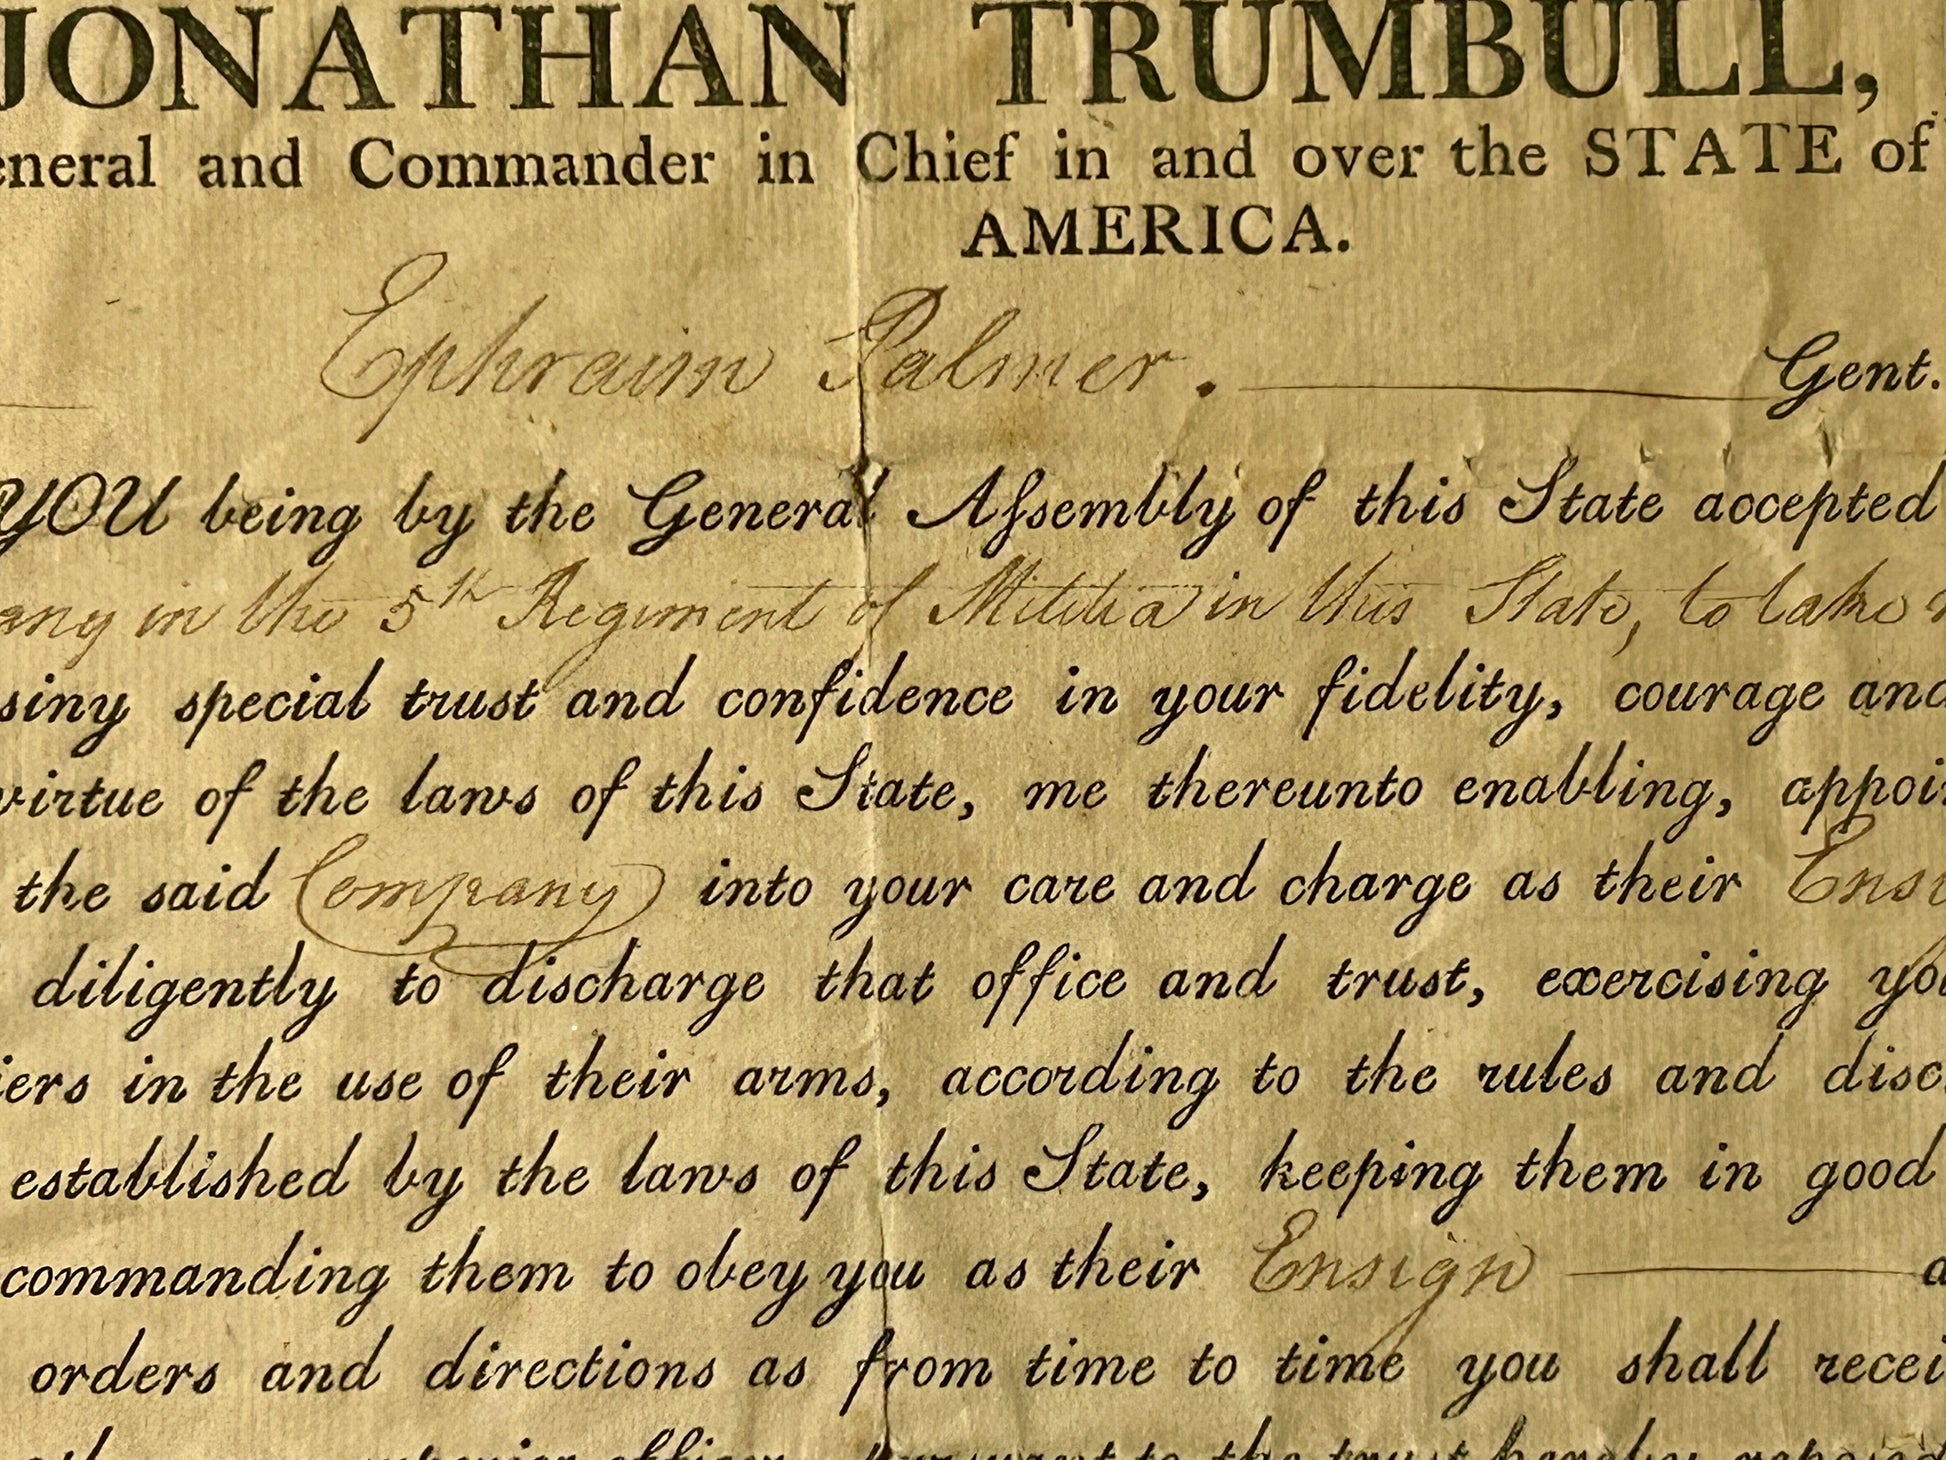 JONATHAN TRUMBULL,
eneral and Commander in Chief in and over the STATE of
AMERICA.
Ephraim Palmer. Gent.
YOU being by the General Aſsembly of this State accepted
any in the 5th Regiment of Militia in this State, to take
siny special trust and confidence in your fidelity, courage and
virtue of the laws of this State, me thereunto enabling, appoi
the said Company into your care and charge as their Ensi
diligently to discharge that office and trust, exercising yo
iers in the use of their arms, according to the rules and disc
established by the laws of this State, keeping them in good
commanding them to obey you as their Ensign a
orders and directions as from time to time you shall recei
superior officer, pursuant to the trust hereby reposed